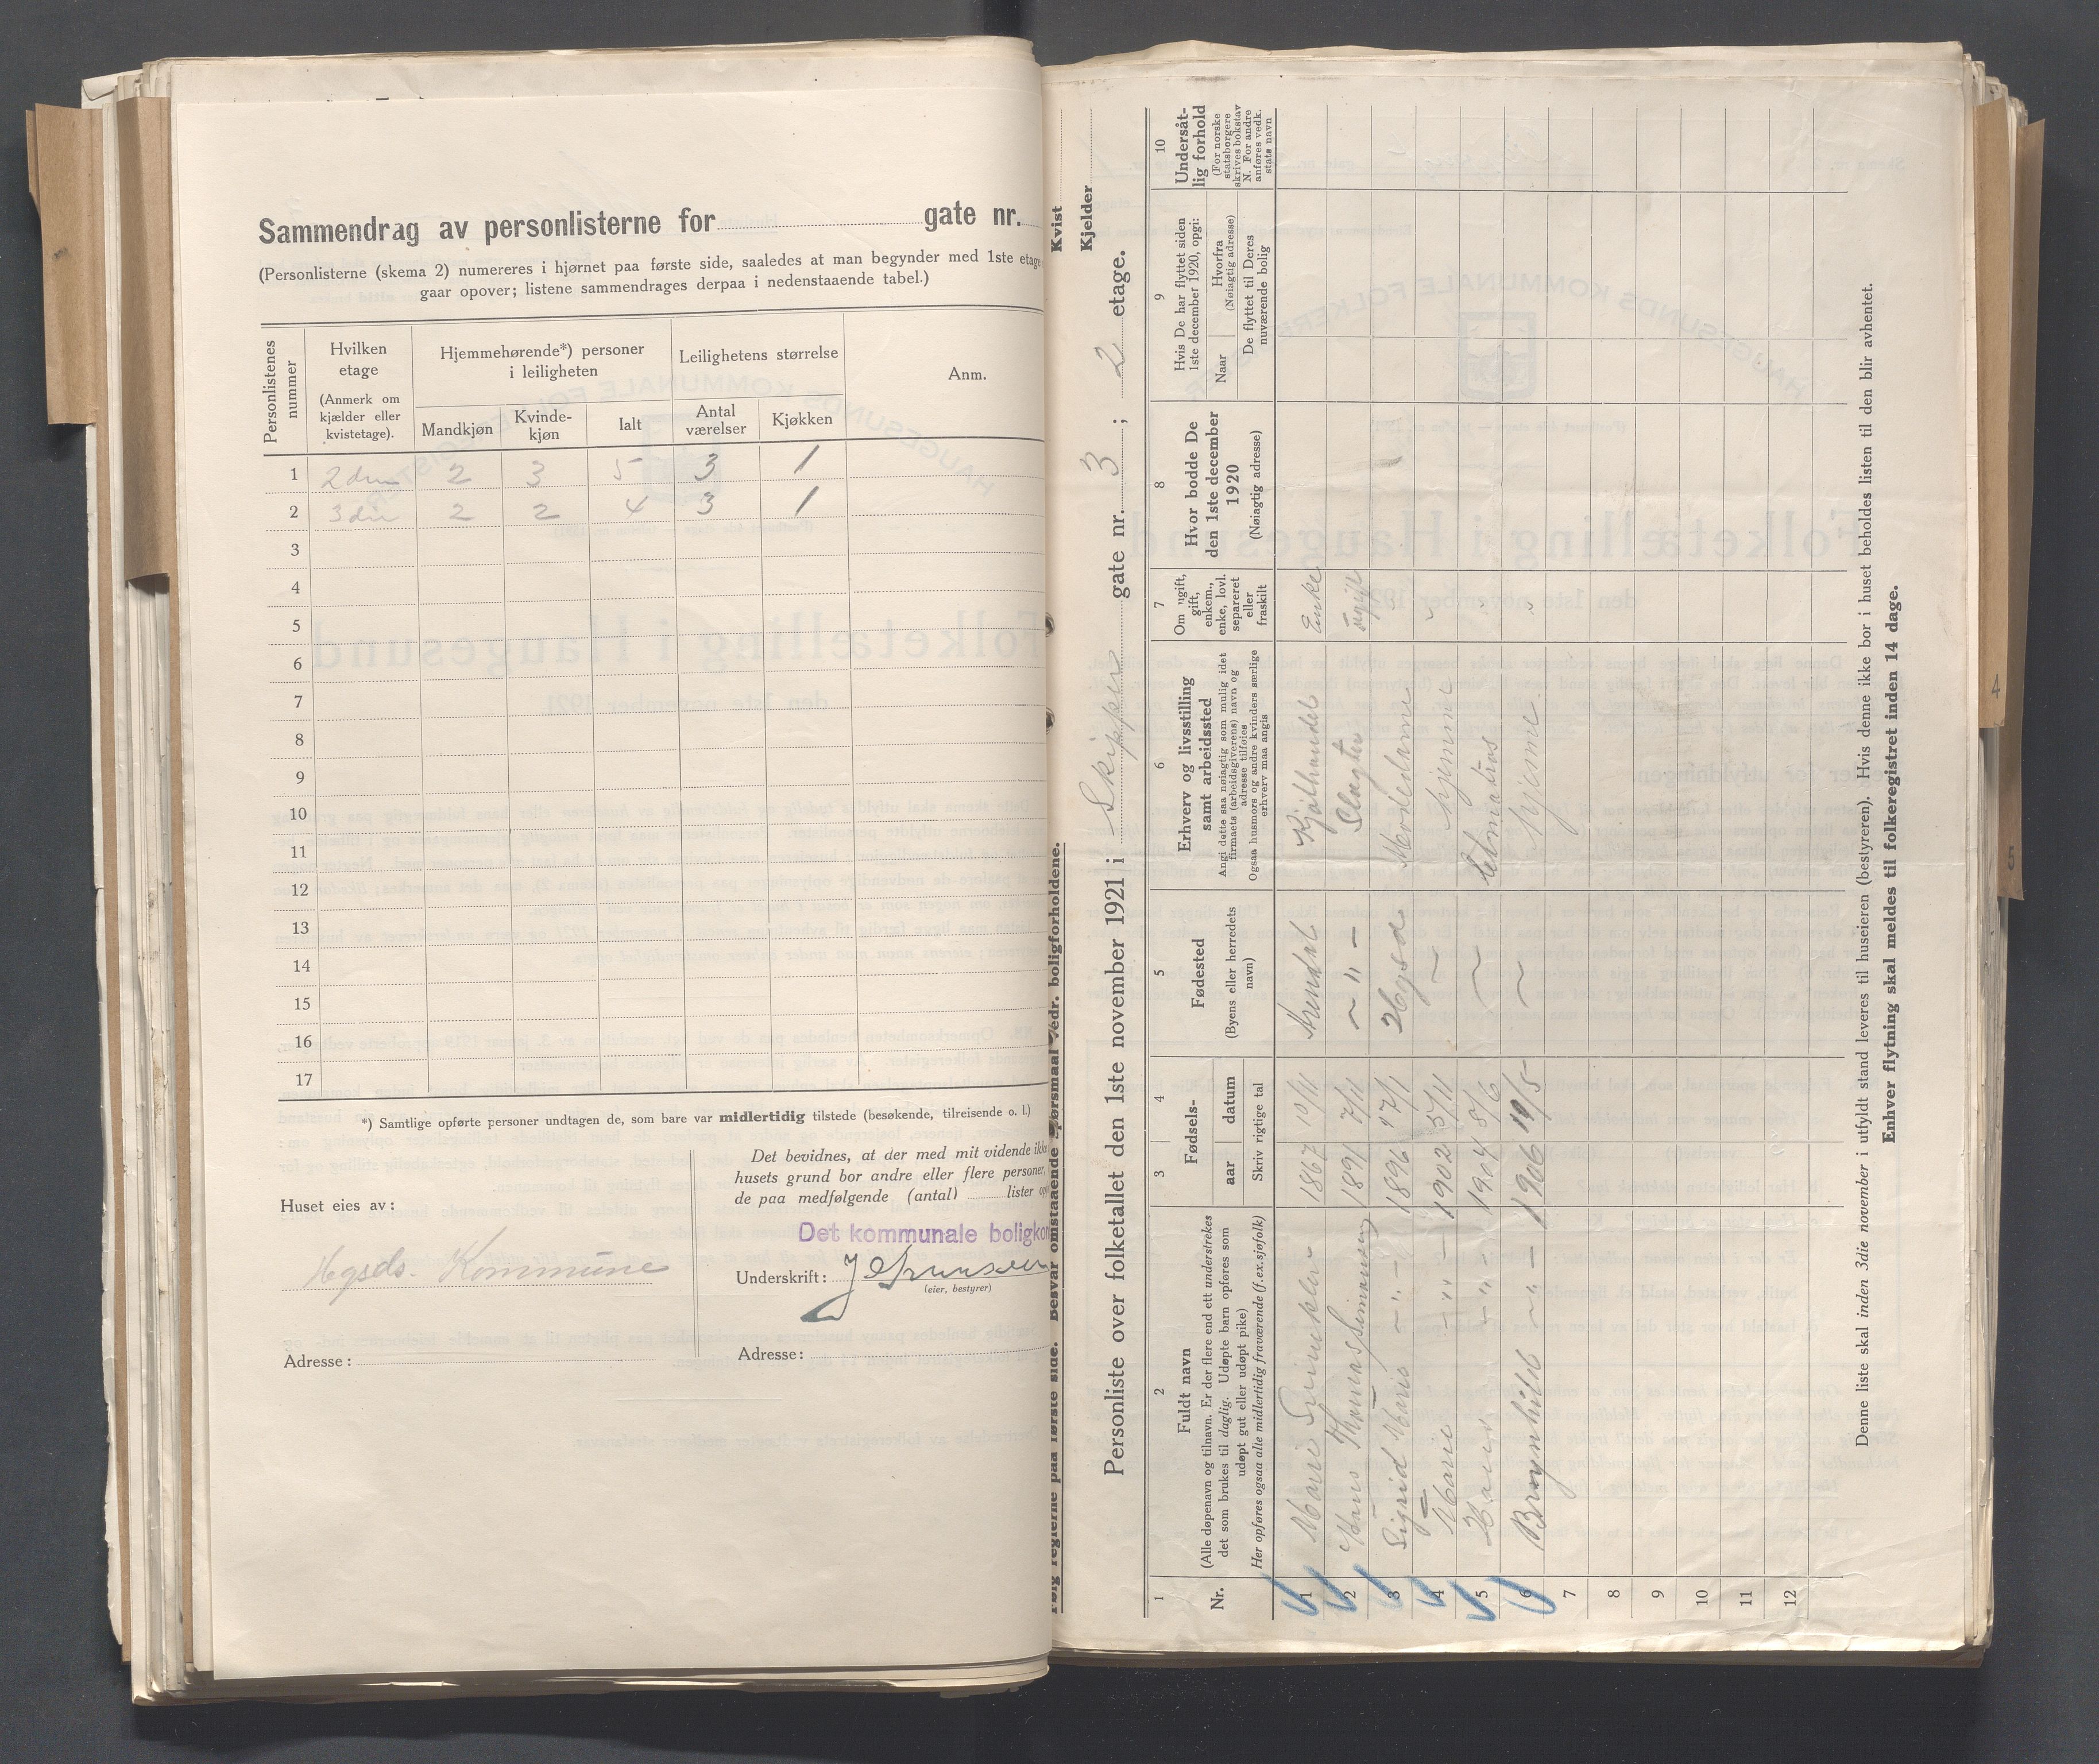 Sammendrag av personlisterne for gate nr.
(Personlisterne (skema 2) numereres i hjørnet paa første side, saaledes at man begynder med 1ste etage
gaar opover; listene sammendrages derpaa i nedenstaaende tabel.)
Personlistenes nummer
Hvilken etage
(Anmerk om kjælder eller kvistetage).
Hjemmehørende*) personer i leiligheten
Mandkjøn
Kvinde-kjøn
Ialt
Leilighetens størrelse
Antal værelser
Kjøkken
Anm.
1 2 3 5 3 1
2 2 2 4 3 1
3
4
5
6
7
8
9
10
11
12
13
14
15
16
17
*) Samtlige opførte personer undtagen de, som bare var midlertidig tilstede (besøkende, tilreisende o. l.)
Huset eies av:
Hgsds. Kommune
Adresse:
Det bevidnes, at der med mit vidende ikke
husets grund bor andre eller flere personer,
de paa medfølgende (antal) lister
Det kommunale boligkon
Underskrift:
(eier, bestyrer)
Adresse:
Følg reglerne paa første side. Besvar omstaaende spørsmaal vedr. boligforholdene.
Kvist
Kjelder
Personliste over folketallet den 1ste november 1921 i Skipper gate nr. 3 ; 2 etage.
1 2 3 4 5 6 7 8 9 10
Nr.
Fuldt navn
(Alle døpenavn og tilnavn. Er der flere end ett understrekes
det som brukes til daglig. Udøpte barn opføres som
udøpt gut eller udøpt pike)
Her opføres ogsaa alle midlertidig fraværende (f.ex.sjøfolk)
Fødsels-
aar datum
Skriv rigtige tal
Fødested
(Byens eller herredets navn)
Erhverv og livsstilling
samt arbeidssted
Angi dette saa nøiagtig som mulig idet
firmaets (arbeidsgiverens) navn og
adresse tilføies
Ogsaa husmors og andre kvinders særlige
erhverv maa angis
Om ugift,
gift,
enkem.,
enke, lovl.
separeret
eller
fraskilt
Hvor bodde De
den 1ste december
1920
(Nøiagtig adresse)
Hvis De har flyttet siden
1ste december 1920, opgi:
Naar
Hvorfra
(Nøiagtig adresse)
De flyttet til Deres
nuværende bolig
Undersåt-
lig forhold
(For norske
statsborgere
skrives bokstav
N. For andre
anføres vedk.
stats navn
1 Marie 1867 10/11 Enke
2 Hans Thomas 1891 7/11 — " — Slagter ugift
3 Sigrid Marie — " — 1896 Hgsd
4 Marie — " — 1902 hjemme "
5 — " — 1904 8/6 "
6 Brynhild — " — 1906 5 hjemme "
7
8
9
10
11
12
Denne liste skal inden 3die november i utfyldt stand leveres til huseieren (bestyreren). Hvis denne ikke bor i huset beholdes listen til den blir avhentet.
Enhver flytning skal meldes til folkeregistret inden 14 dage.